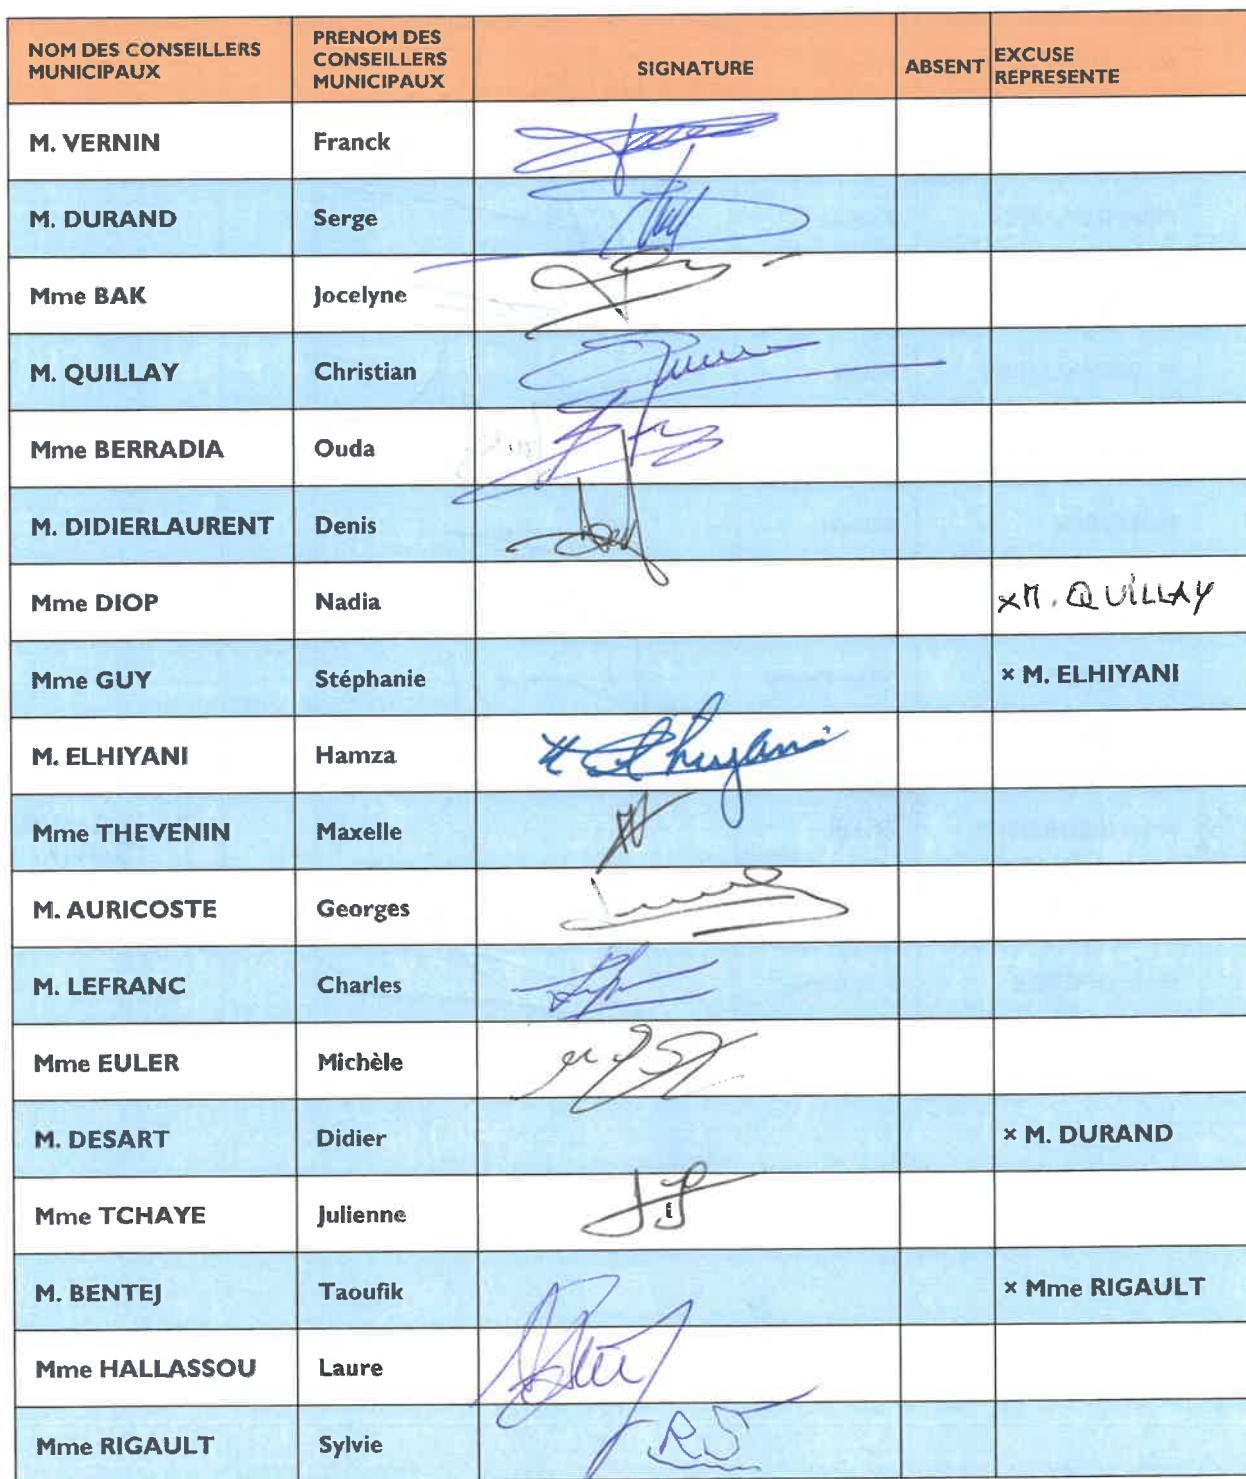 NOM DES CONSEILLERS MUNICIPAUX PRENOM DES CONSEILLERS MUNICIPAUX SIGNATURE ABSENT EXCUSE REPRESENTE
M. VERNIN Franck
M. DURAND Serge
Mme BAK Jocelyne
M. QUILLAY Christian
Mme BERRADIA Ouda
M. DIDIERLAURENT Denis
Mme DIOP Nadia ×M. QUILLAY
Mme GUY Stéphanie × M. ELHIYANI
M. ELHIYANI Hamza
Mme THEVENIN Maxelle
M. AURICOSTE Georges
M. LEFRANC Charles
Mme EULER Michèle
M. DESART Didier × M. DURAND
Mme TCHAYE Julienne
M. BENTEJ Taoufik × Mme RIGAULT
Mme HALLASSOU Laure
Mme RIGAULT Sylvie